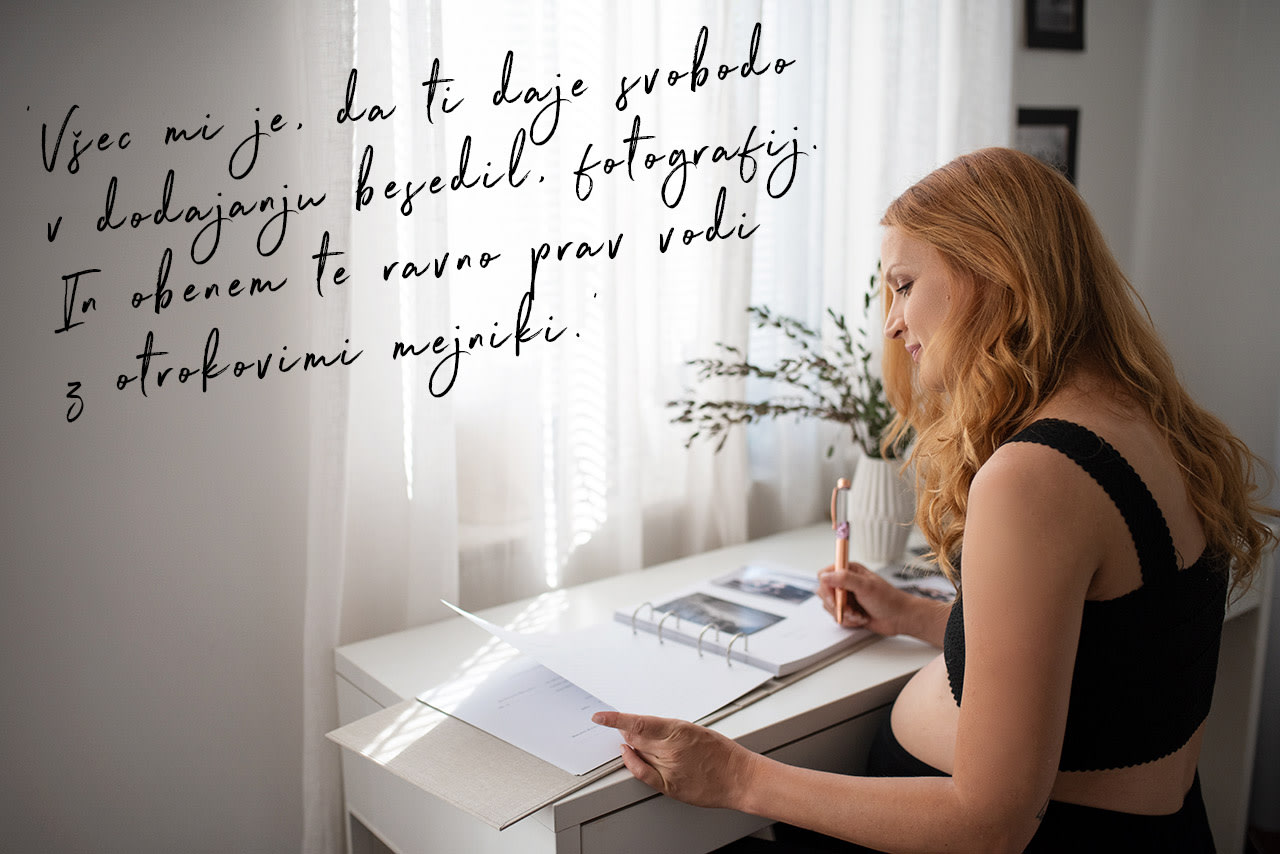 "Všec mi je, da ti daje svobodo
v dodajanju besedil, fotografij.
In obenem te ravno prav vodi
z otrokovimi mejniki."